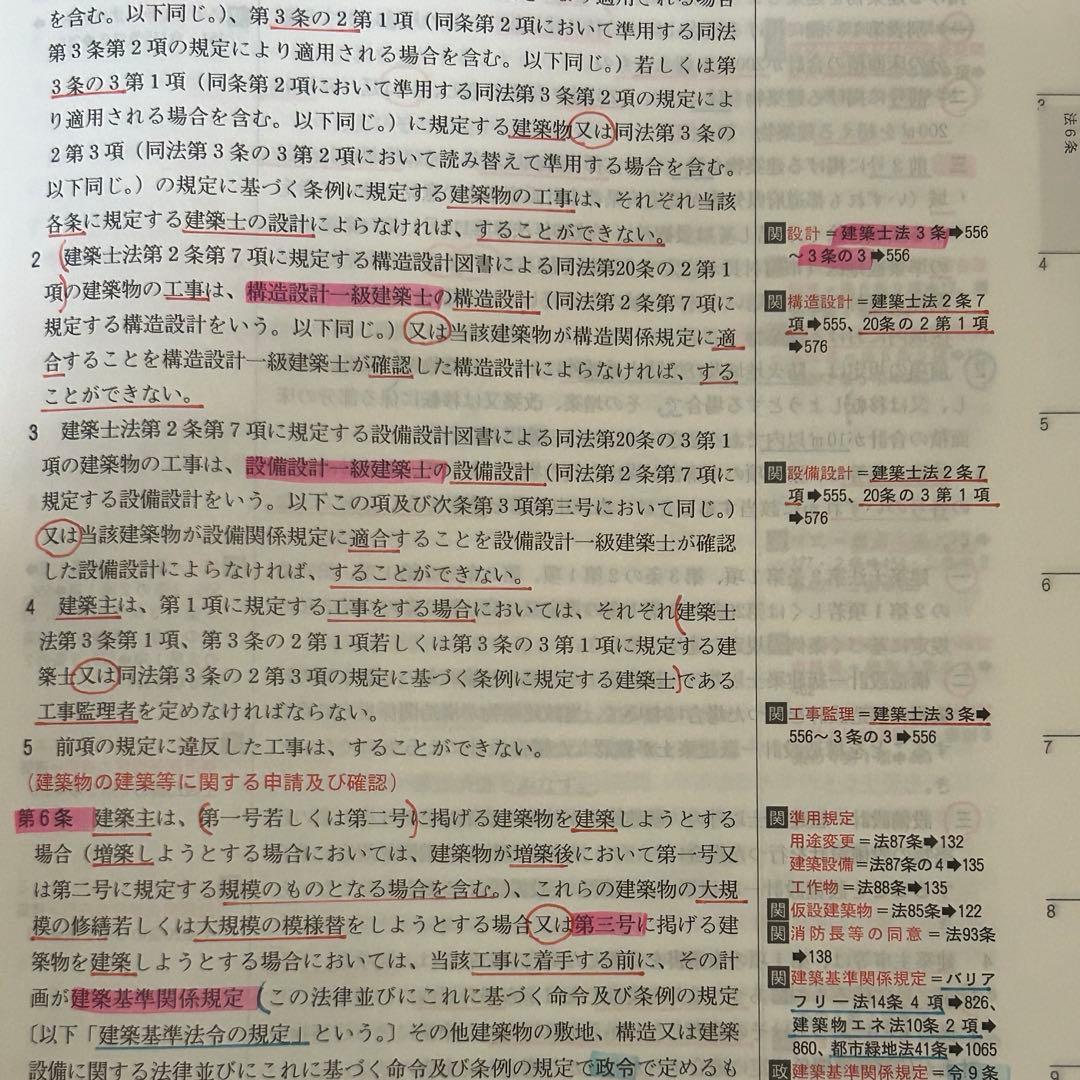 を含む。以下同じ。）、第３条の２第１項（同条第２項において準用する同法
第３条第２項の規定により適用される場合を含む。以下同じ。）若しくは第
３条の３第１項（同条第２項において準用する同法第３条第２項の規定によ
り適用される場合を含む。以下同じ。）に規定する建築物又は同法第３条の
２第３項（同法第３条の３第２項において読み替えて準用する場合を含む。
以下同じ。）の規定に基づく条例に規定する建築物の工事は、それぞれ当該
各条に規定する建築士の設計によらなければ、することができない。
2 建築士法第２条第７項に規定する構造設計図書による同法第20条の２第１
項の建築物の工事は、構造設計一級建築士の構造設計（同法第２条第７項に
規定する構造設計をいう。以下同じ。）又は当該建築物が構造関係規定に適
合することを構造設計一級建築士が確認した構造設計によらなければ、する
ことができない。
3 建築士法第２条第７項に規定する設備設計図書による同法第20条の３第１
項の建築物の工事は、設備設計一級建築士の設備設計（同法第２条第７項に
規定する設備設計をいう。以下この項及び次条第３項第三号において同じ。）
又は当該建築物が設備関係規定に適合することを設備設計一級建築士が確認
した設備設計によらなければ、することができない。
4 建築主は、第１項に規定する工事をする場合においては、それぞれ建築士
法第３条第１項、第３条の２第１項若しくは第３条の３第１項に規定する建
築士又は同法第３条の２第３項の規定に基づく条例に規定する建築士である
工事監理者を定めなければならない。
5 前項の規定に違反した工事は、することができない。
（建築物の建築等に関する申請及び確認）
第６条 建築主は、第一号若しくは第二号に掲げる建築物を建築しようとする
場合（増築しようとする場合においては、建築物が増築後において第一号又
は第二号に規定する規模のものとなる場合を含む。）、これらの建築物の大規
模の修繕若しくは大規模の模様替をしようとする場合又は第三号に掲げる建
築物を建築しようとする場合においては、当該工事に着手する前に、その計
画が建築基準関係規定（この法律並びにこれに基づく命令及び条例の規定
〔以下「建築基準法令の規定」という。〕その他建築物の敷地、構造又は建築
設備に関する法律並びにこれに基づく命令及び条例の規定で政令で定めるも
関 設計＝建築士法３条➡556
～３条の３➡556
関 構造設計＝建築士法２条７
項➡555、20条の２第１項
➡576
関 設備設計＝建築士法２条７
項➡555、20条の３第１項
➡576
関 工事監理＝建築士法３条➡
556～３条の３➡556
関 準用規定
用途変更＝法87条➡132
建築設備＝法87条の４➡135
工作物＝法88条➡135
関 仮設建築物＝法85条➡122
関 消防長等の同意＝法93条
➡138
関 建築基準関係規定＝バリア
フリー法14条４項➡826、
建築物エネ法10条２項➡
860、都市緑地法41条➡1065
政 建築基準関係規定＝令９条
法６条
3
4
5
6
7
8
9